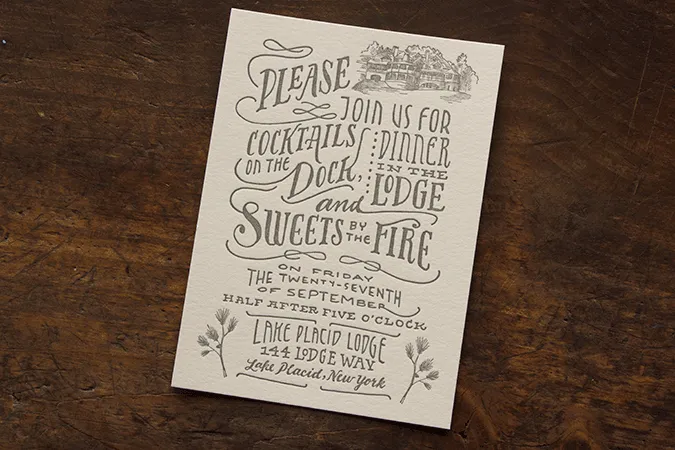 PLEASE
JOIN US FOR
COCKTAILS
ON THE
DOCK,
DINNER
IN THE
LODGE
and
SWEETS BY THE FIRE
ON FRIDAY
THE TWENTY-SEVENTH
OF SEPTEMBER
HALF AFTER FIVE O'CLOCK
LAKE PLACID LODGE
144 LODGE WAY
Lake Placid, New York